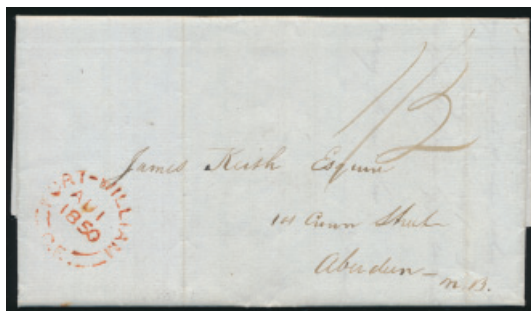 1/2
James Keith Esquire
101 Crown Street
Aberdeen — N.B.
FORT-WILLIAM
AU 1
1850
C.E.